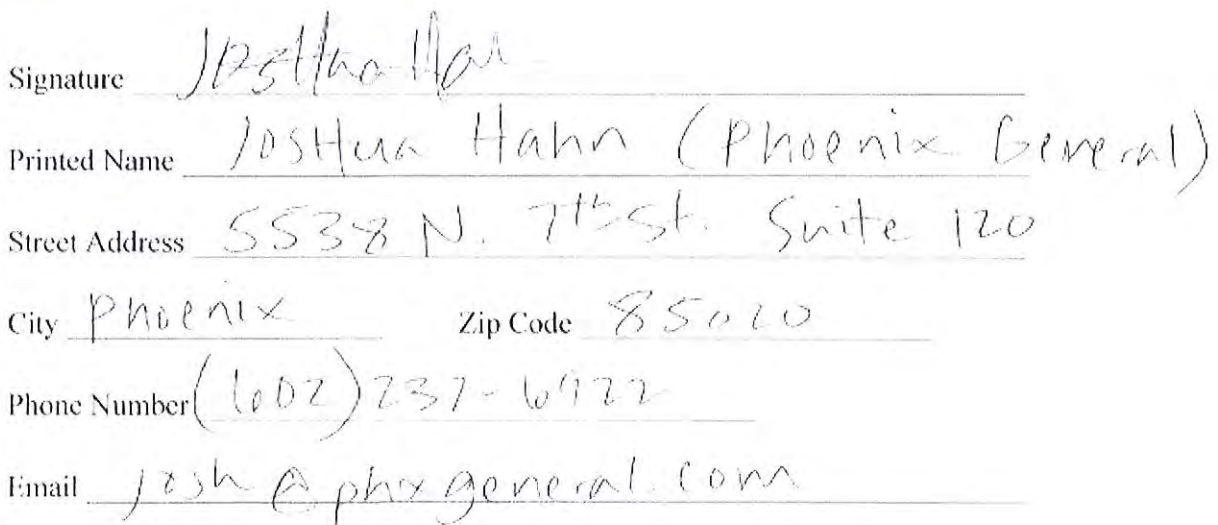 Signature Joshua Hah
Printed Name JosHua Hahn (Phoenix General)
Street Address 5538 N. 7th St. Suite 120
City Phoenix Zip Code 85020
Phone Number (602) 237-6922
Email josh@phxgeneral.com